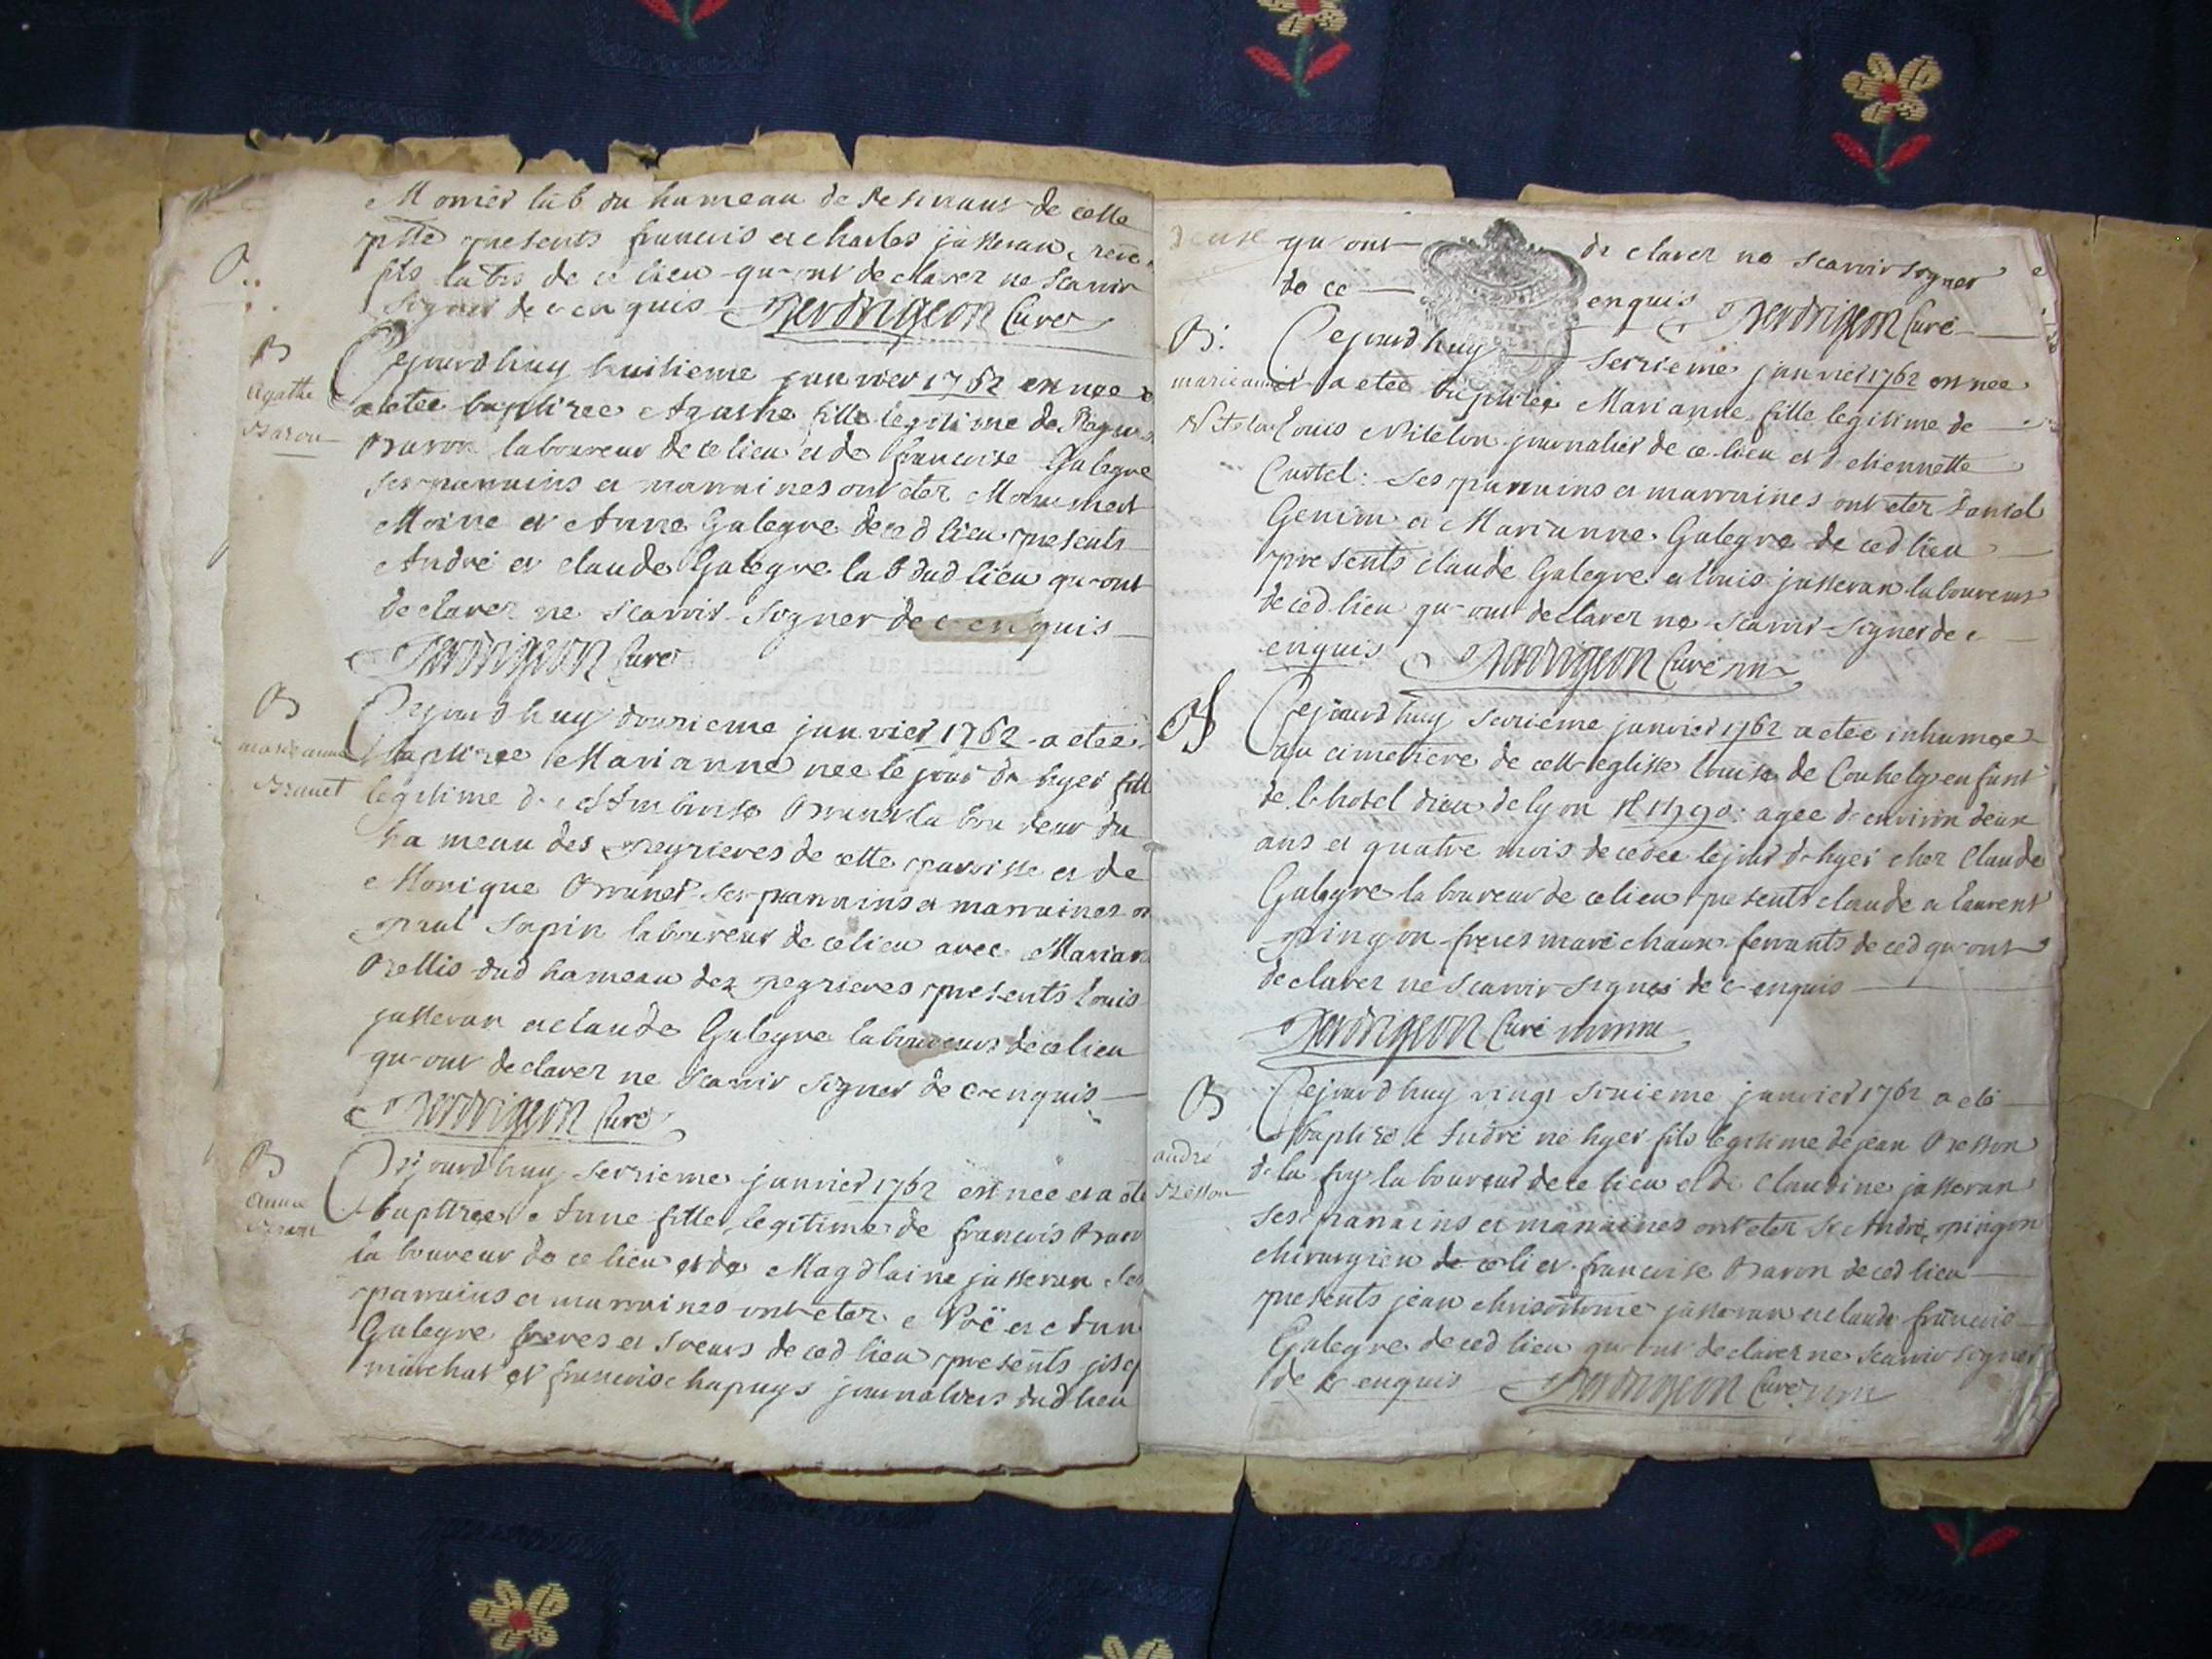 Monier lab du hameau de de cette
psse presents francois et charles jasseran
fils labrs de ce lieu qu-ont declarer ne scavoir
signer de ce enquis Perdrigeon Curé
B
agathe
Baron
Cejourdhuy huitieme janvier 1762 est nee
a etee baptizee Agathe fille legitime de
Baron laboureur de ce lieu et de francoise Galegre
ses parrains et marraines ont eter
Moine et Anne Galegre de ced lieu presents
André et claude Galegre lab dud lieu qu-ont
declarer ne scavoir signer de ce enquis
Perdrigeon Curé
B
marieanne
Brunet
Cejourdhuy douzieme janvier 1762 a etee
baptizee Marianne nee le jour dhyer fille
legitime de Brunet laboureur du
hameau des peyrieres de cette paroisse et de
Monique Brunet ses parrains et marraines
paul Sapin laboureur de ce lieu avec Marian
dud hameau des pegrieres presents Louis
jasseran et claude Galegre laboureurs de ce lieu
qu-ont declarer ne scavoir signer de ce enquis
Perdrigeon Curé
B
anne
Baron
Cejourdhuy seizieme janvier 1762 est nee et a ete
baptizee Anne fille legitime de francois Baron
laboureur de ce lieu et de Magdlaine jasseran ses
parrains et marraines ont eter Noë et Ann
Galegre freres et soeurs de ced lieu presents
marchat et francois chapuys journaliers dud lieu
qu-ont declarer ne scavoir signer
de ce enquis Perdrigeon Curé
B
marieanne
Vitelon
Cejourdhuy seizieme janvier 1762 est nee
et a etee baptizee Marianne fille legitime de
Louis Vitelon journalier de ce lieu et detiennette
Castel: ses parrains et marraines ont eter
Genim et Marianne Galegre de ced lieu
presents claude Galegre et louis jasseran laboureurs
de ced lieu qu-ont declarer ne scavoir signer de ce
enquis Perdrigeon Curé
Cejourdhuy seizieme janvier 1762 a etee inhumee
au cimetiere de cette eglisse Louise de enfant
de lhotel dieu de lyon agee denviron deux
ans et quatre mois decedee le jour dhyer chez Claude
Galegre laboureur de ce lieu presents claude et laurent
pingon freres marechaux ferrants de ced qu-ont
declarer ne scavoir signer de ce enquis
Perdrigeon Curé
B
andré
Besson
Cejourdhuy vingt sixieme janvier 1762 a eté
baptizé André né hyer fils legitime de jean Besson
de la fay laboureur de ce lieu et de Claudine jasseran
ses parrains et marraines ont eter Sr André pingon
chirurgien de ce li et francoise Baron de ced lieu
presents jean chrisostome jasseran et claude francois
Galegre de ced lieu qu-ont declarer ne scavoir signer
de ce enquis Perdrigeon Curé